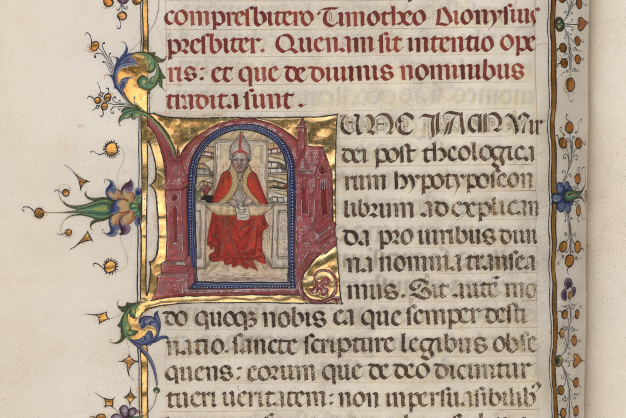 compresbitero Timotheo Dionysius
presbiter. Quenam sit intentio ope
ris: et que de diuinis nominibus
tradita sunt.
NUNC IAM uir
dei post theologica
rum hypotyposeon
librum ad explican
da pro uiribus diui
na nomina transea
mus. Sit autē mo
do quoqꝫ nobis ea que semper desti
natio. sancte scripture legibus obse
quens: eorum que de deo dicuntur
tueri ueritatem: non in persuasibilibꝰ